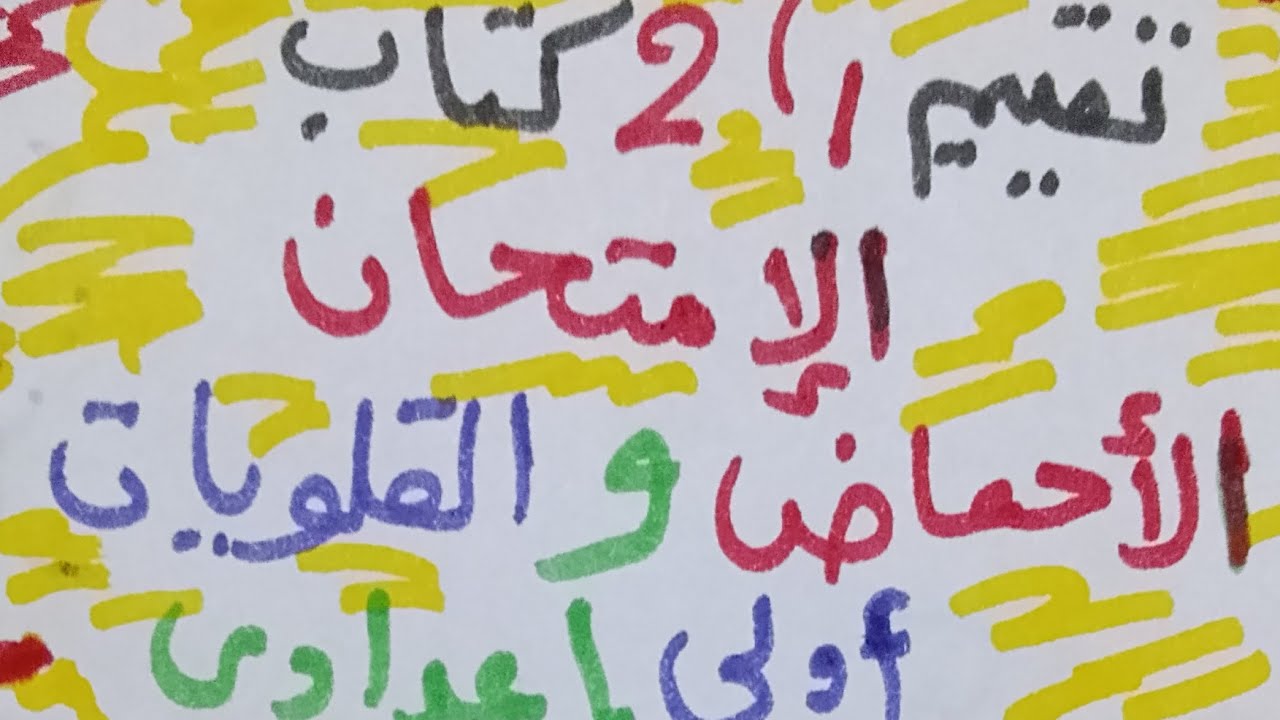 تقييم (1) 2 كتاب
الإمتحان
الأحماض و القلويات
أولى إعدادى